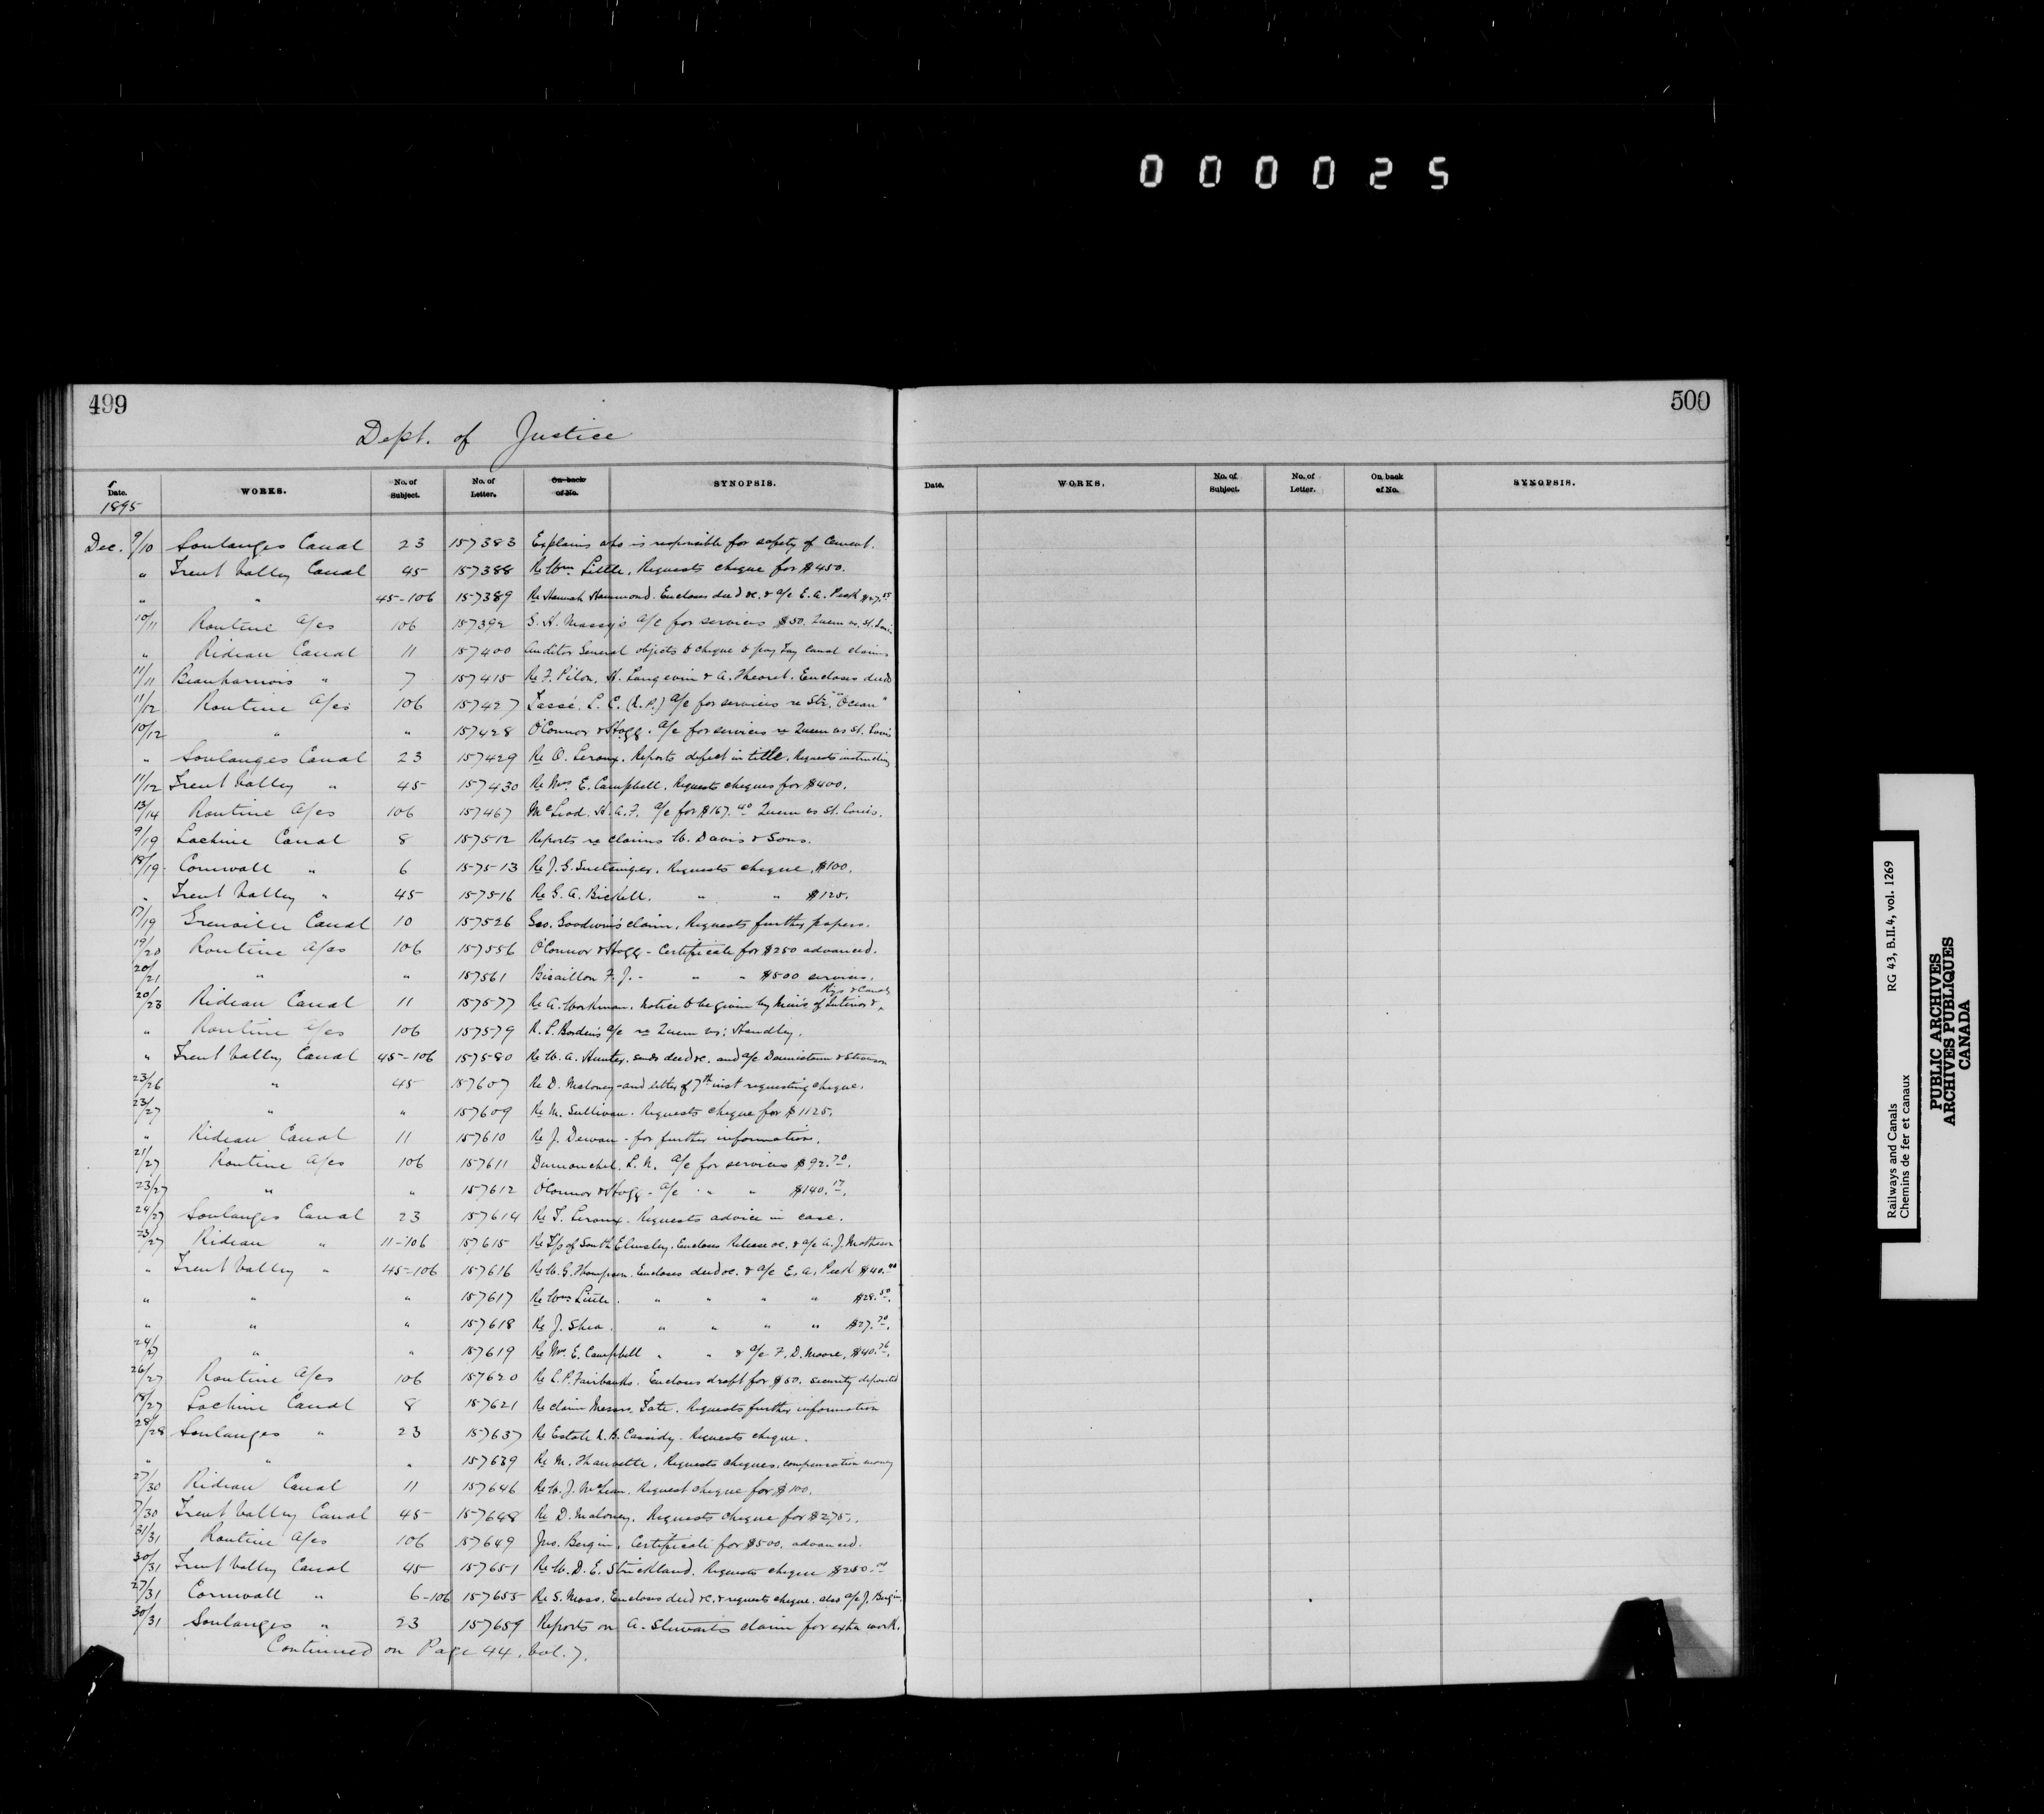 000025
499
500
Dept. of Justice
Date. WORKS. No. of Subject. No. of Letter. On back of No. SYNOPSIS.
Date. WORKS. No. of Subject. No. of Letter. On back of No. SYNOPSIS.
1895
Dec. 9/10 Soulanges Canal 23 157383 Explains who is responsible for safety of Cement.
" Trent Valley Canal 45 157388 Re Wm Little. Requests cheque for $450.
" " 45-106 157389 Re Hannah Hammond. Encloses deed &c. & a/c E. A. Peck $27.85
10/11 Routine A/cs 106 157392 S. H. Massey's a/c for services $50. Queen vs. St. Louis
" Rideau Canal 11 157400 Auditor General objects to cheque to pay Tay Canal claims
11/11 Beauharnois " 7 157415 Re F. Pilon, H. Langevin & A. Theoret. Encloses deeds
11/12 Routine A/cs 106 157427 Tassé. L. C. (N.P.) a/c for services re Str. "Ocean"
10/12 " " 157428 O'Connor & Hogg. a/c for services re Queen vs St. Louis
" Soulanges Canal 23 157429 Re O. Leroux. Reports defect in title. Requests instructions
11/12 Trent Valley " 45 157430 Re Mrs E. Campbell. Requests cheques for $400.
13/14 Routine A/cs 106 157467 McLeod. H. A. F. a/c for $167.40 Queen vs St. Louis.
9/19 Lachine Canal 8 157512 Reports re claims W. Davis & Sons.
18/19 Cornwall " 6 157513 Re J. G. Snetsinger. Requests cheque $100.
" Trent Valley " 45 157516 Re G. A. Bickell. " " $125.
17/19 Grenville Canal 10 157526 Geo. Goodwin's claim. Requests further papers.
19/20 Routine A/cs 106 157556 O'Connor & Hogg - Certificate for $250 advanced.
20/21 " " 157561 Bisaillon F. J. - " " $500 services.
Rys & Canals
20/23 Rideau Canal 11 157577 Re A. Workman. Notice to be given by Min's of Interior &
" Routine A/cs 106 157579 R. L. Borden's a/c re Queen vs: Handley.
" Trent Valley Canal 45-106 157580 Re W. A. Hunter. sends deed &c. and a/c Dennistoun & Stevenson
23/26 " 45 157607 Re D. Maloney - and letter of 7th inst requesting cheque.
23/27 " " 157609 Re M. Sullivan. Requests cheque for $1125.
" Rideau Canal 11 157610 Re J. Dewan - for further information.
21/27 Routine A/cs 106 157611 Dumouchel. L. N. a/c for services $92.70.
23/27 " " 157612 O'Connor & Hogg - a/c " " $140.17.
24/27 Soulanges Canal 23 157614 Re T. Leroux. Requests advice in case.
23/27 Rideau " 11-106 157615 Re T/p of South Elmsley. Encloses Release &c. & a/c A. J. Matheson
" Trent Valley " 45-106 157616 Re W. G. Thompson. Encloses deed &c. & a/c E. A. Peck $40.00
" " " 157617 Re Wm Little. " " " " $28.50.
" " " 157618 Re J. Shea. " " " " $27.70.
24/27 " " 157619 Re Mrs E. Campbell " " & a/c F. D. Moore, $40.76.
26/27 Routine A/cs 106 157620 Re L. P. Fairbanks. Encloses draft for $50. security deposited
18/27 Lachine Canal 8 157621 Re claim Messrs. Tate. Requests further information
28/28 Soulanges " 23 157637 Re Estate R. B. Cassidy. Requests cheque.
" " " 157639 Re M. Thauvette. Requests cheques, compensation money
27/30 Rideau Canal 11 157646 Re W. J. McLean. Request cheque for $100.
7/30 Trent Valley Canal 45 157648 Re D. Maloney. Requests cheque for $275.
31/31 Routine A/cs 106 157649 Jno. Bergin. Certificate for $500. advanced.
30/31 Trent Valley Canal 45 157651 Re W. D. E. Strickland. Requests cheque $250.00
27/31 Cornwall " 6-106 157655 Re S. Moss. Encloses deed &c. & requests cheque. also a/c J. Bergin.
30/31 Soulanges " 23 157659 Reports on A. Stewarts claim for extra work.
Continued on Page 44. Vol. 7.
Railways and Canals RG 43, B.II.4, vol. 1269
Chemins de fer et canaux
PUBLIC ARCHIVES
ARCHIVES PUBLIQUES
CANADA